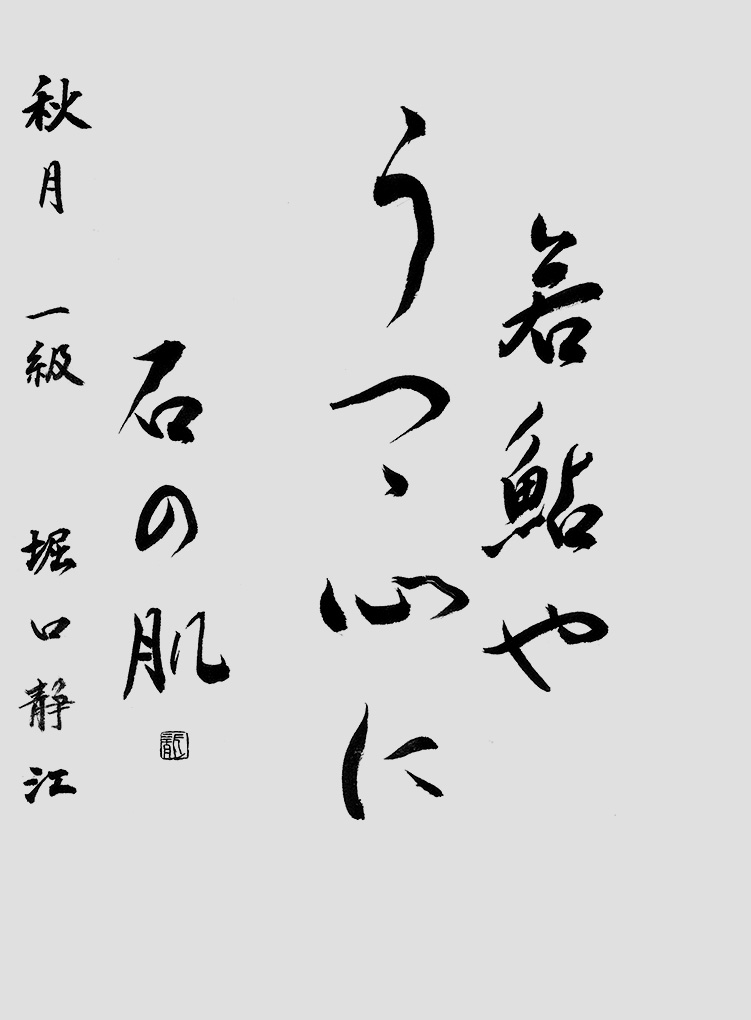 若鮎や
うつゝ心に
石の肌
秋月 一級 堀口静江